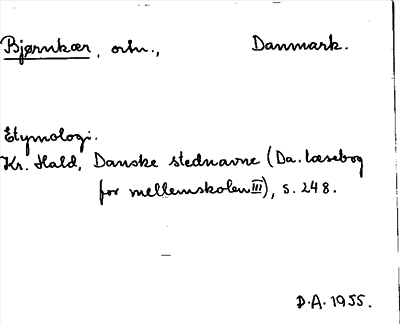 Bjørnkær, orln., Danmark.
Etymologi.
Kr. Hald, Danske stednavne (Da. læsebog
for mellemskolen III), s. 248.
D.A. 1955.